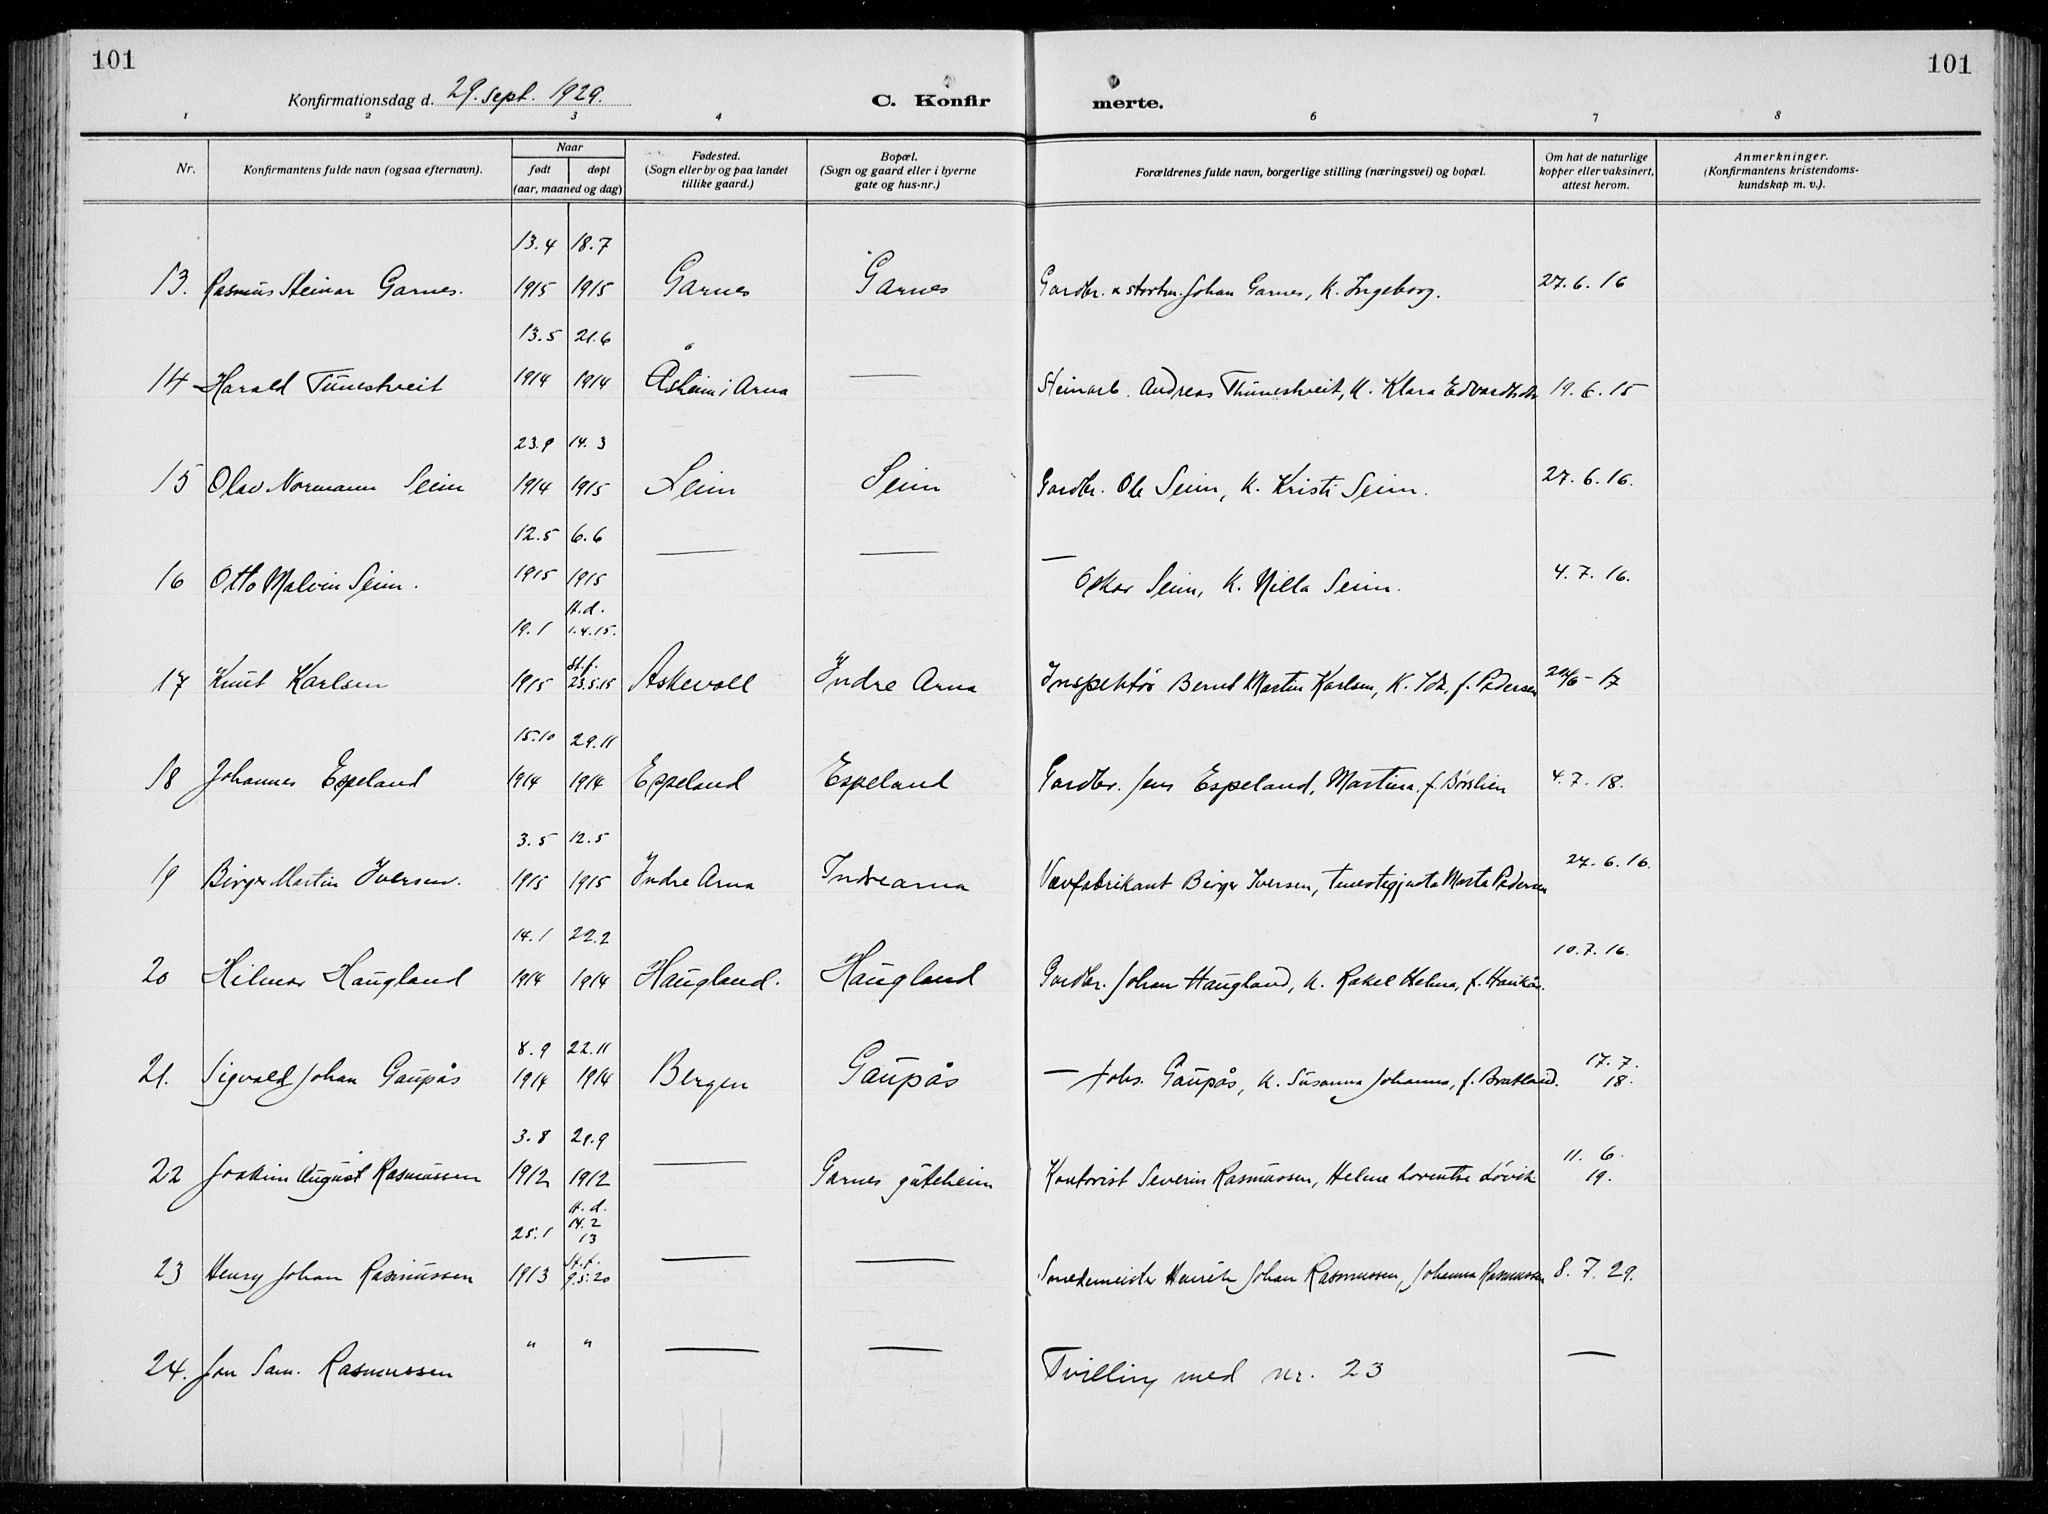 101
101
Konfirmationsdag d. 29. Sept. 1929.
C. Konfir merte.
1 2 3 4 5 6 7 8
Nr.
Konfirmantens fulde navn (ogsaa efternavn).
Naar
født døpt
(aar, maaned og dag)
Fødested.
(Sogn eller by og paa landet
tillike gaard.)
Bopæl.
(Sogn og gaard eller i byerne
gate og hus-nr.)
Forældrenes fulde navn, borgerlige stilling (næringsvei) og bopæl.
Om hat de naturlige
kopper eller vaksinert,
attest herom.
Anmerkninger.
(Konfirmantens kristendoms-
kundskap m. v.).
13.4 18.7
13. Rasmus Steinar Garnes. 1915 1915 Garnes Garnes Gardbr. & stortm. Johan Garnes, K. Ingeborg. 27.6.16
13.5 21.6
14 Harald Tunestveit 1914 1914 Åsheim i Arna — Steinarb. Andreas Thunestveit, K. Klara Edvardsdtr 19.6.15
23.9 14.3
15 Olav Normann Seim 1914 1915 Seim Seim Gardbr. Ole Seim, K. Kristi Seim. 27.6.16.
12.5 6.6
16 Otto Malvin Seim. 1915 1915 — — — Oskar Seim, K. Nilla Seim. 4.7.16.
19.1 H.d. 1.4.15.
17 Knut Karlsen 1915 St.f. 23.5.15 Askevoll Indre Arna Inspektør Bernt Martin Karlsen, K. Ida, f. Pedersen 24/6-17
15.10 29.11
18 Johannes Espeland 1914 1914 Espeland Espeland Gardbr. Jens Espeland, Martina, f. Børslien 4.7.18.
3.5 12.5
19 Birger Martin Iversen. 1915 1915 Indre Arna Indrearna Vævfabrikant Birger Iversen, tenestegjenta Marta Pedersen 27.6.16.
14.1 22.2
20 Hilmar Haugland 1914 1914 Haugland. Haugland Gardbr. Johan Haugland, K. Rakel Helma, f. Haukås. 10.7.16.
8.9 22.11
21. Sigvald Johan Gaupås 1914 1914 Bergen Gaupås — Johs. Gaupås, K. Susanna Johanna, f. Bratland. 17.7.18.
3.8 29.9
22 Joakim August Rasmussen 1912 1912 — Garnes guteheim Kontorist Severin Rasmussen, Helene Lorentse Løvik 11.6.19.
25.1 H.d. 14.2 13
23 Henry Johan Rasmussen 1913 St.f. 9.5.20 — — Smedemeister Henrik Johan Rasmussen, Johanna Rasmussen 8.7.29.
24. Jon Sam. Rasmussen " " — — Tvilling med nr. 23 —